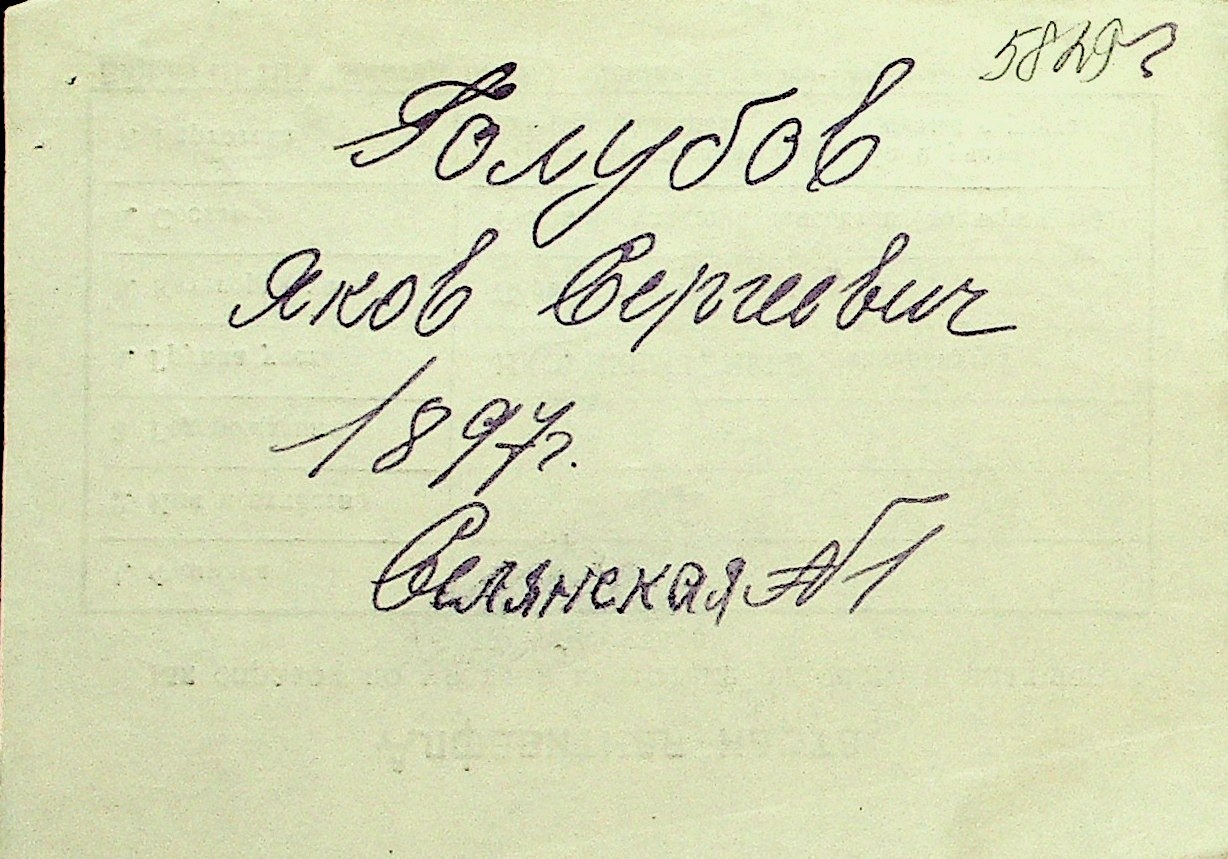 58292
Голубов
Яков Сергеевич
1897г.
Селянская №1